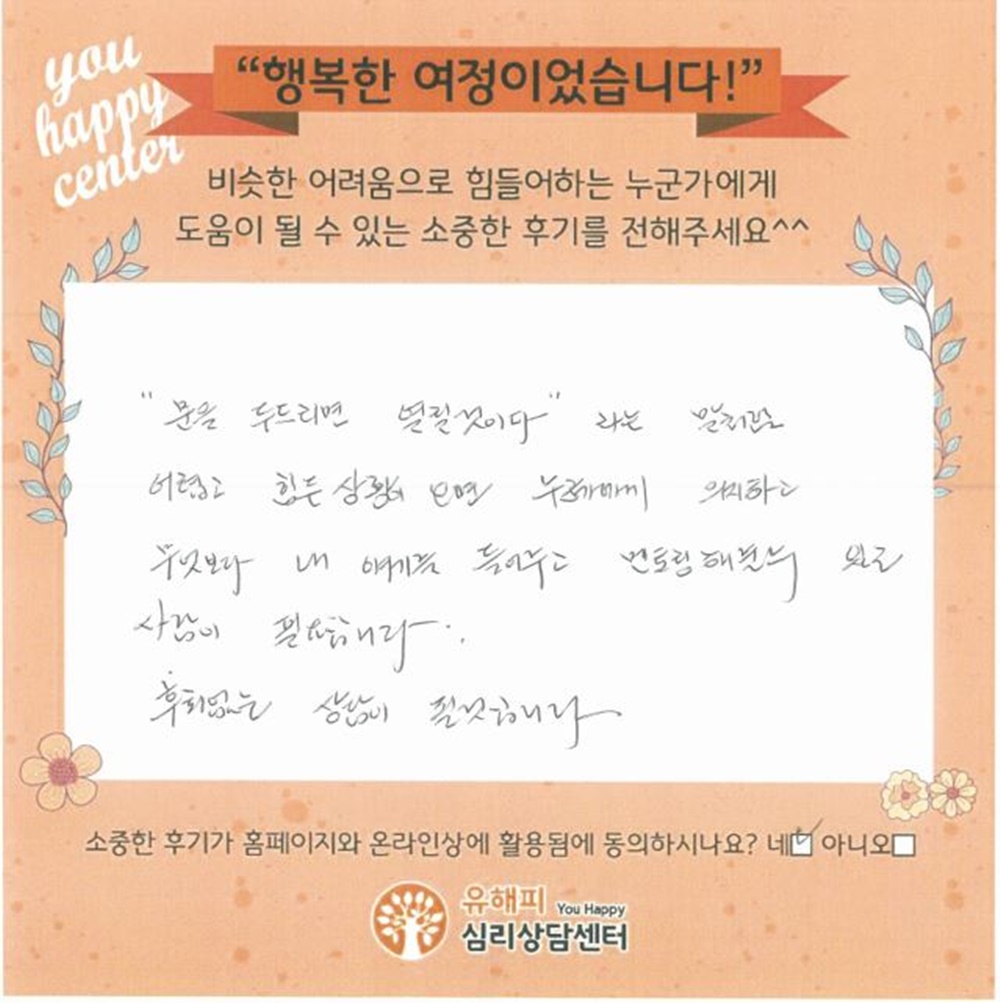 you
happy
center
“행복한 여정이었습니다!”
비슷한 어려움으로 힘들어하는 누군가에게
도움이 될 수 있는 소중한 후기를 전해주세요^^
"문을 두드리면 열릴것이다" 라는 말처럼
어렵고 힘든 상황이 오면 누군가에게 의지하고
무엇보다 내 얘기를 들어주고 멘토링해줄
사람이 필요합니다..
후회없는 상담이 될것입니다
소중한 후기가 홈페이지와 온라인상에 활용됨에 동의하시나요? 네 아니오
유해피 You Happy
심리상담센터